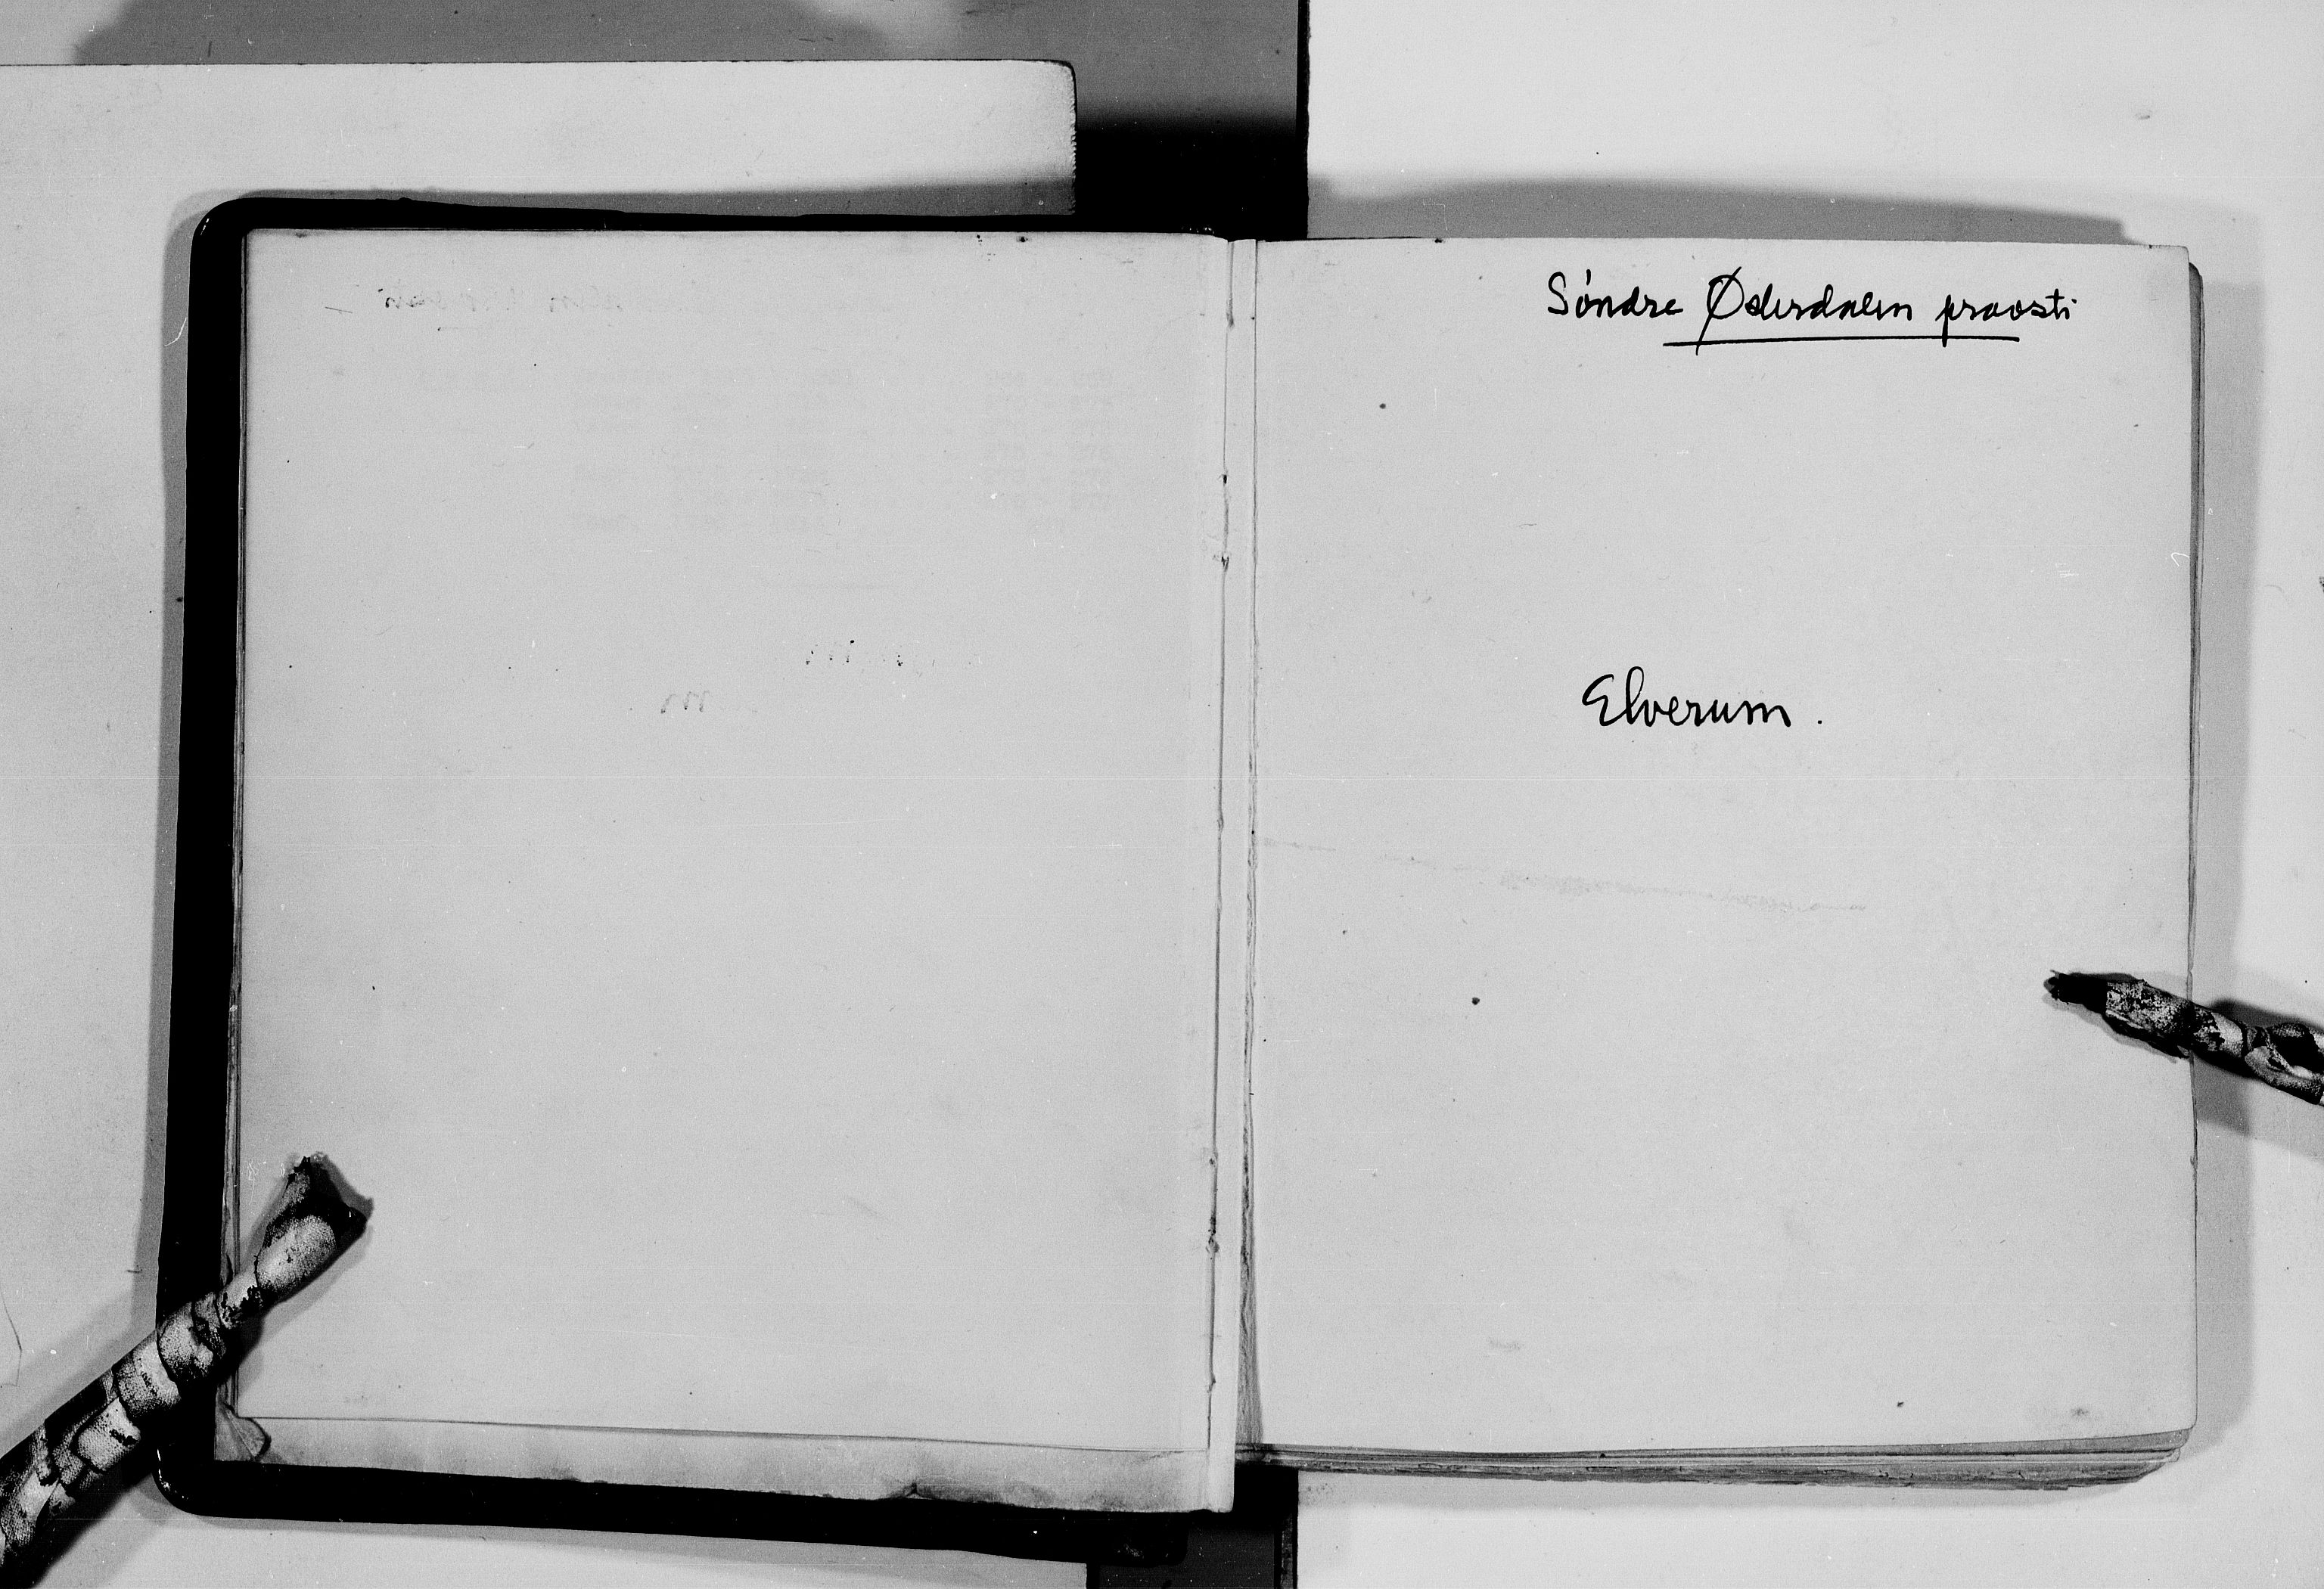 Söndre Østerdalen prosti
Elverum.